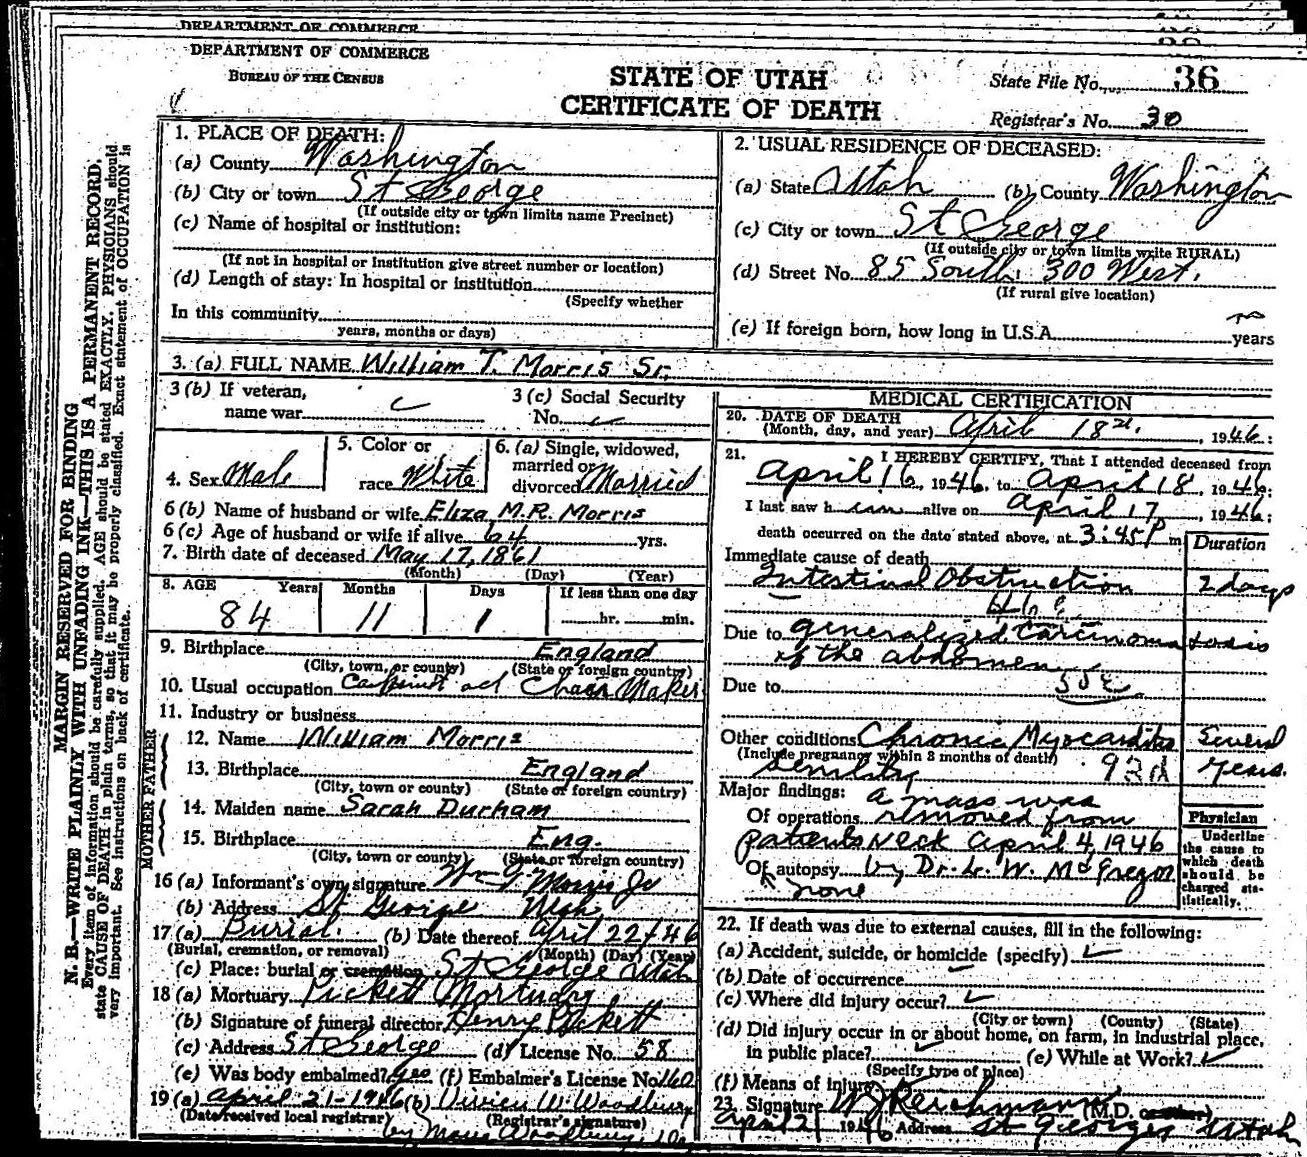 DEPARTMENT OF COMMERCE
DEPARTMENT OF COMMERCE
BUREAU OF THE CENSUS
STATE OF UTAH
CERTIFICATE OF DEATH
State File No. 36
Registrar's No. 30
MARGIN RESERVED FOR BINDING
N. B.—WRITE PLAINLY WITH UNFADING INK—THIS IS A PERMANENT RECORD.
Every item of information should be carefully supplied. AGE should be stated EXACTLY. PHYSICIANS should
state CAUSE OF DEATH in plain terms, so that it may be properly classified. Exact statement of OCCUPATION is
very important. See instructions on back of certificate.
1. PLACE OF DEATH:
(a) County Washington
(b) City or town St George
(If outside city or town limits name Precinct)
(c) Name of hospital or institution:
(If not in hospital or institution give street number or location)
(d) Length of stay: In hospital or institution
(Specify whether
In this community
years, months or days)
2. USUAL RESIDENCE OF DECEASED:
(a) State Utah (b) County Washington
(c) City or town St George
(If outside city or town limits write RURAL)
(d) Street No. 85 South 300 West.
(If rural give location)
(e) If foreign born, how long in U.S.A. years
3. (a) FULL NAME William T. Morris Sr.
3 (b) If veteran,
name war
3 (c) Social Security
No.
4. Sex Male
5. Color or
race White
6. (a) Single, widowed,
married or
divorced Married
6 (b) Name of husband or wife Eliza M.R. Morris
6 (c) Age of husband or wife if alive 64 yrs.
7. Birth date of deceased May 17, 1861
(Month) (Day) (Year)
8. AGE Years Months Days If less than one day
84 11 1 hr. min.
9. Birthplace England
(City, town, or county) (State or foreign country)
10. Usual occupation Chair Maker
11. Industry or business
FATHER
12. Name William Morris
13. Birthplace England
(City, town or county) (State or foreign country)
MOTHER
14. Maiden name Sarah Durham
15. Birthplace Eng.
(City, town or county) (State or foreign country)
16 (a) Informant's own signature Wm T Morris Jr
(b) Address St George Utah
17 (a) Burial. (b) Date thereof April 22 / 46
(Burial, cremation, or removal) (Month) (Day) (Year)
(c) Place: burial or cremation St George Utah
18 (a) Mortuary Pickett Mortuary
(b) Signature of funeral director Henry Pickett
(c) Address St George (d) License No. 58
(e) Was body embalmed? yes (f) Embalmer's License No. 160
19 (a) April 21-1946 (b) Vivien W. Woodbury
(Date received local registrar) (Registrar's signature)
by Woodbury
MEDICAL CERTIFICATION
20. DATE OF DEATH
(Month, day, and year) April 18 , 1946:
21. I HEREBY CERTIFY, That I attended deceased from
April 16, 1946, to April 18, 1946:
I last saw him alive on April 17, 1946:
death occurred on the date stated above, at 3:45 P m
Duration
Immediate cause of death
Intestinal Obstruction 2 days
Due to generalized Carcinomatosis
of the abdomen
Due to
Other conditions Chronic Myocarditis Several
(Include pregnancy within 3 months of death)
Senility 93d years.
Major findings: a mass was
Of operations removed from
patients neck April 4, 1946
Of autopsy by Dr. L. W. McGregor
none
Physician
Underline
the cause to
which death
should be
charged sta-
tistically.
22. If death was due to external causes, fill in the following:
(a) Accident, suicide, or homicide (specify)
(b) Date of occurrence
(c) Where did injury occur?
(City or town) (County) (State)
(d) Did injury occur in or about home, on farm, in industrial place,
in public place? (e) While at Work?
(Specify type of place)
(f) Means of injury
23. Signature W J Reichmann (M.D. or other)
April 21 1946 Address St George Utah